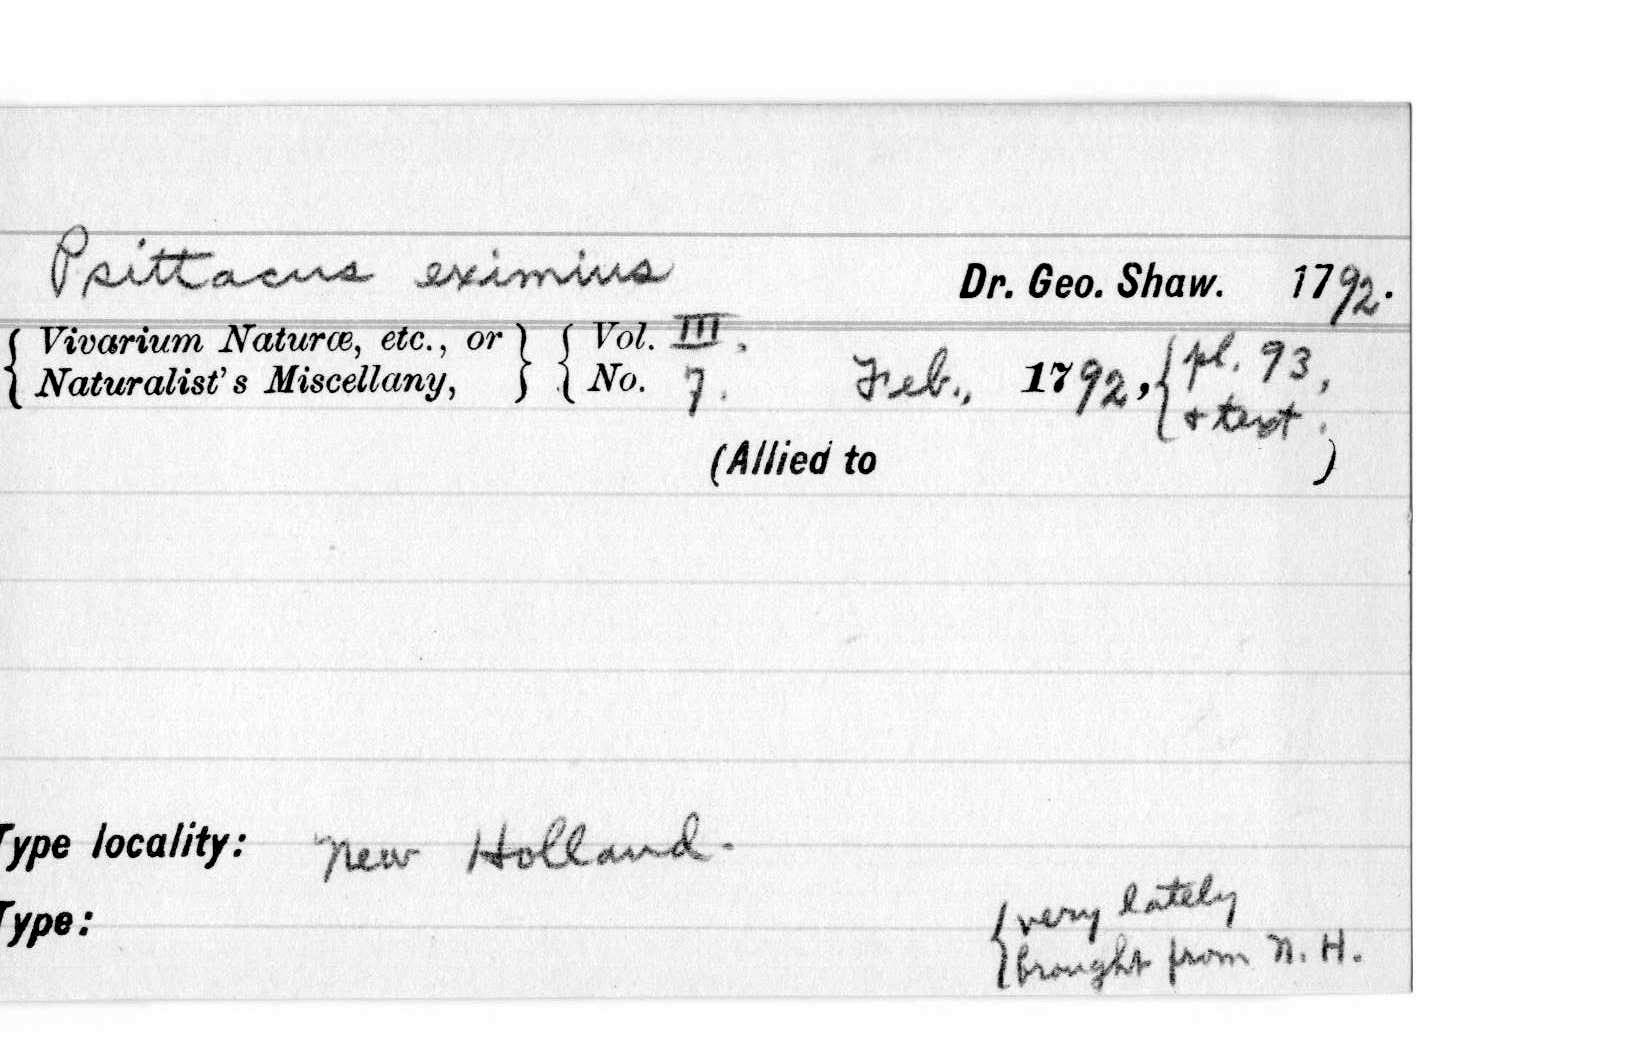 Psittacus eximius Dr. Geo. Shaw. 1792.
{ Vivarium Naturæ, etc., or } { Vol. III,
{ Naturalist's Miscellany, } { No. 7. Feb., 1792, { pl. 93,
{ & text.
(Allied to )
Type locality: New Holland.
Type: { very lately
{ brought from N. H.